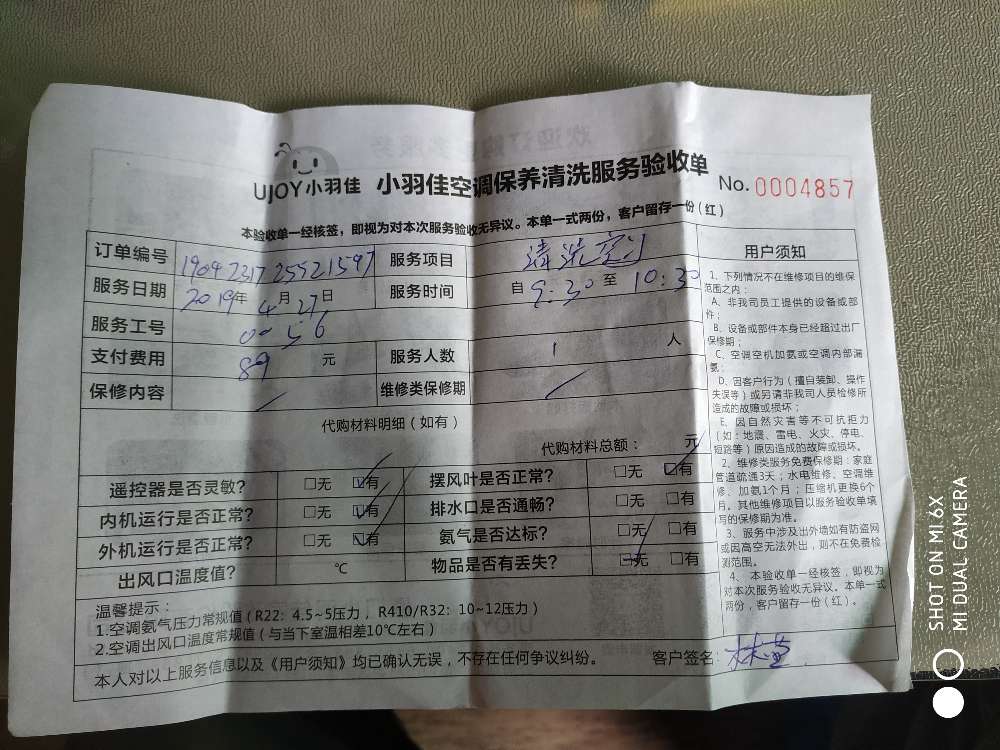 UJOY小羽佳 小羽佳空调保养清洗服务验收单 No. 0004857
本验收单一经核签，即视为对本次服务验收无异议。本单一式两份，客户留存一份（红）
订单编号 1904231725521597 服务项目 清洗空调
服务日期 2019年4月27日 服务时间 自 9:30 至 10:30
服务工号 0056
支付费用 89 元 服务人数 1 人
保修内容 / 维修类保修期 /
代购材料明细（如有）
代购材料总额： 元
遥控器是否灵敏？ □无 ☑有 摆风叶是否正常？ □无 ☑有
内机运行是否正常？ □无 ☑有 排水口是否通畅？ □无 □有
外机运行是否正常？ □无 ☑有 氨气是否达标？ □无 □有
出风口温度值？ ℃ 物品是否有丢失？ ☑无 □有
温馨提示：
1.空调氨气压力常规值（R22：4.5~5压力，R410/R32：10~12压力）
2.空调出风口温度常规值（与当下室温相差10℃左右）
本人对以上服务信息以及《用户须知》均已确认无误，不存在任何争议纠纷。 客户签名：
用户须知
1、下列情况不在维修项目的维保
范围之内：
A、非我司员工提供的设备或部
件；
B、设备或部件本身已经超过出厂
保修期；
C、空调空机加氨或空调内部漏
氨；
D、因客户行为（擅自装卸、操作
失误等）或另请非我司人员检修所
造成的故障或损坏；
E、因自然灾害等不可抗拒力
（如：地震、雷电、火灾、停电、
短路等）原因造成的故障或损坏。
2、维修类服务免费保修期：家庭
管道疏通3天；水电维修、空调维
修、加氨1个月；压缩机更换6个
月。其他维修项目以服务验收单填
写的保修期为准。
3、服务中涉及出外墙如有防盗网
或因高空无法外出，则不在免费检
测范围。
4、本验收单一经核签，即视为
对本次服务验收无异议。本单一式
两份，客户留存一份（红）。
SHOT ON MI 6X
MI DUAL CAMERA